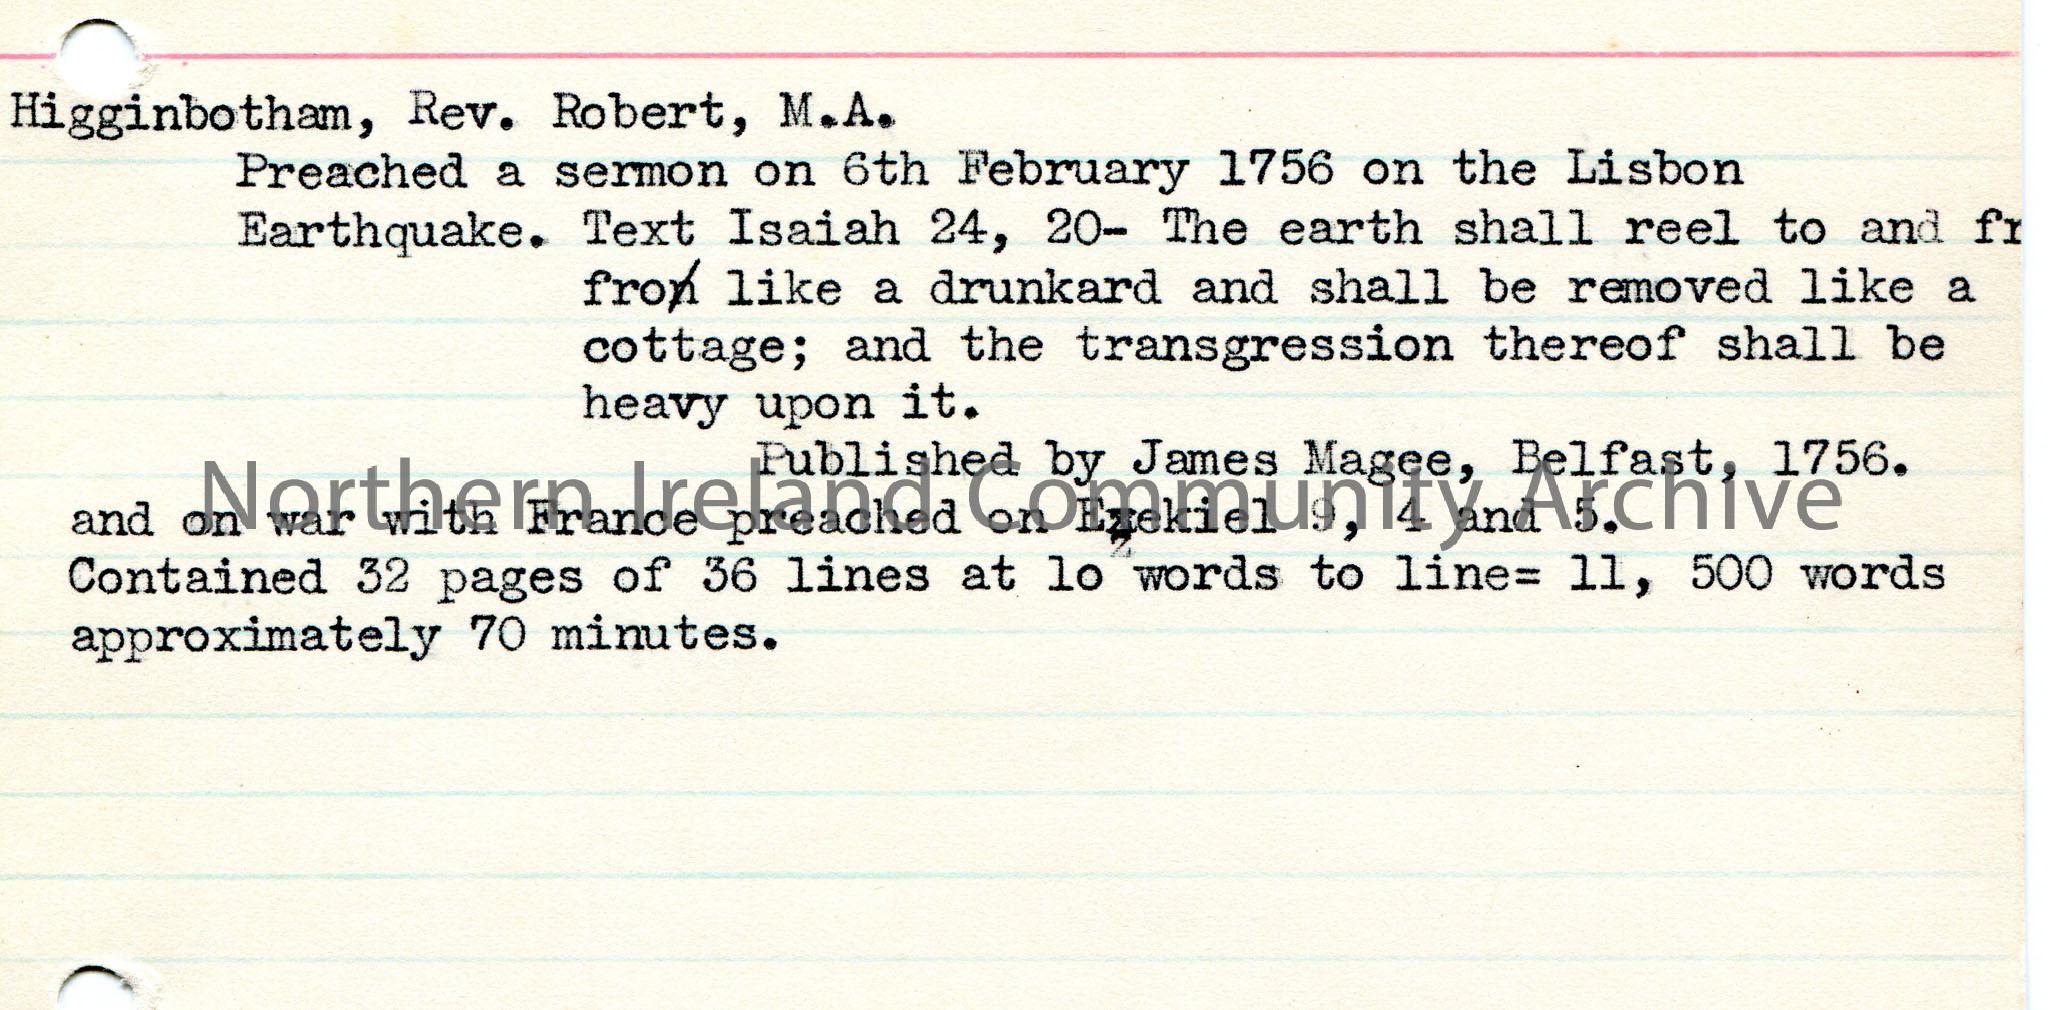 Higginbotham, Rev. Robert, M.A.
Preached a sermon on 6th February 1756 on the Lisbon
Earthquake. Text Isaiah 24, 20- The earth shall reel to and fr
fron like a drunkard and shall be removed like a
cottage; and the transgression thereof shall be
heavy upon it.
Published by James Magee, Belfast, 1756.
Northern Ireland Community Archive
and on war with France preached on Ezekiel 9, 4 and 5.
z
Contained 32 pages of 36 lines at lo words to line= 11, 500 words
approximately 70 minutes.